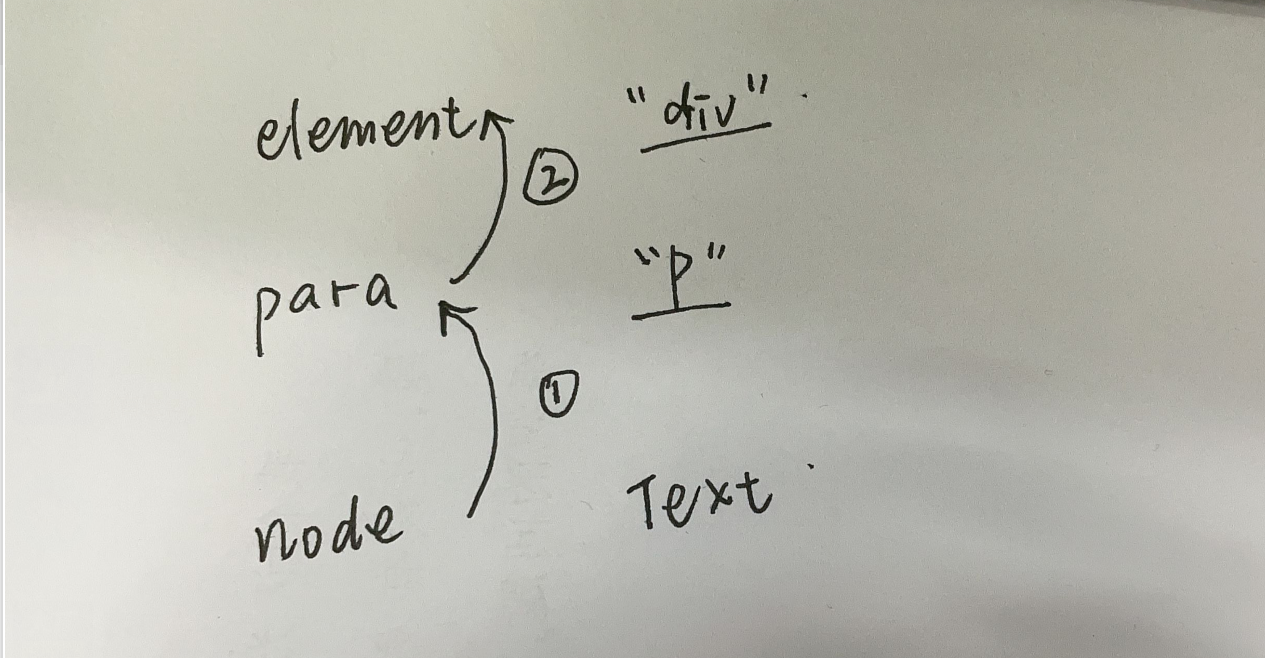 element "div"
②
para "p"
①
node Text